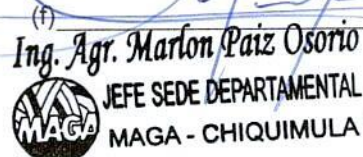 (f)
Ing. Agr. Marlon Paiz Osorio
JEFE SEDE DEPARTAMENTAL
MAGA
MAGA - CHIQUIMULA